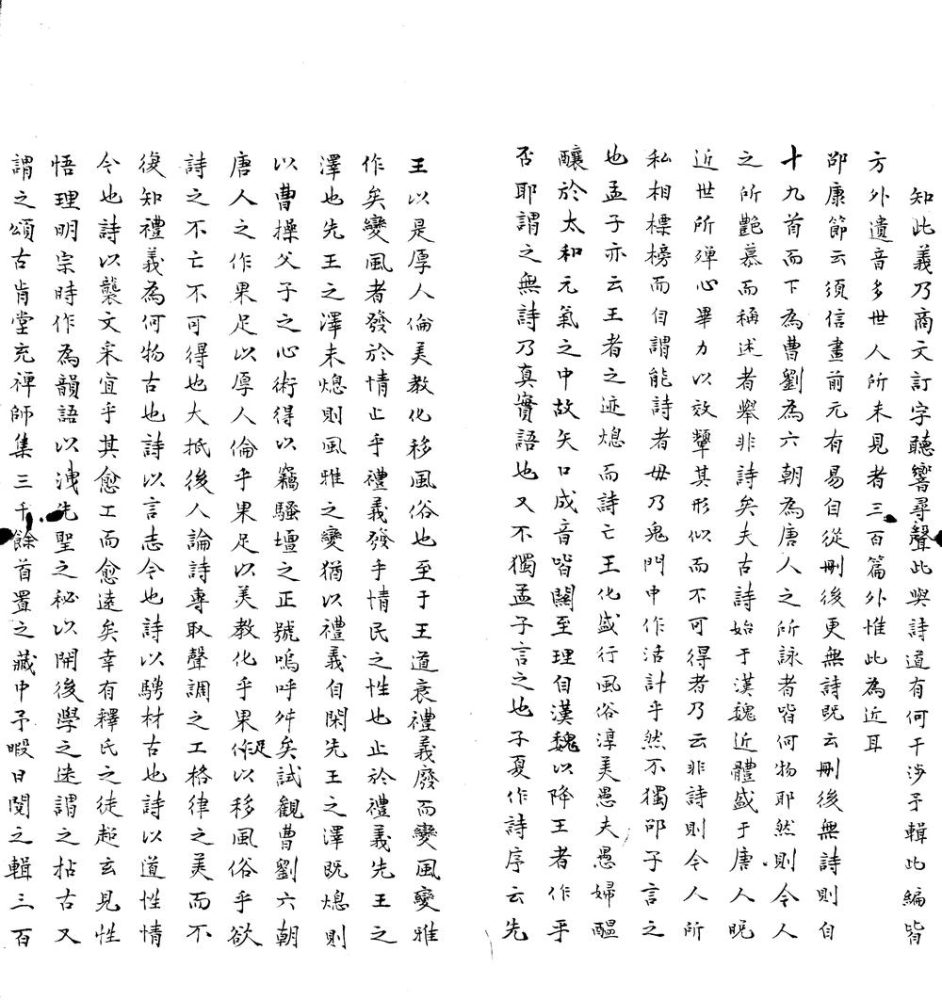 知此義乃商文訂字聽響尋聲此與詩道有何干涉予輯此編皆
方外遺音多世人所未見者三百篇外惟此為近耳
邵康節云須信畫前元有易自從刪後更無詩既云刪後無詩則自
十九首而下為曹劉為六朝為唐人之所詠者皆何物耶然則今人
之所艷慕而稱述者舉非詩矣夫古詩始于漢魏近體盛于唐人昵
近世所殫心畢力以效顰其形似而不可得者乃云非詩則令人所
私相標榜而自謂能詩者毋乃鬼門中作活計乎然不獨邵子言之
也孟子亦云王者之迹熄而詩亡王化盛行風俗淳美愚夫愚婦醞
釀於太和元氣之中故矢口成音皆闗至理自漢魏以降王者作乎
否耶謂之無詩乃真實語也又不獨孟子言之也子夏作詩序云先
王以是厚人倫美教化移風俗也至于王道衰禮義廢而變風變雅
作矣變風者發於情止乎禮義發乎情民之性也止於禮義先王之
澤也先王之澤未熄則風雅之變猶以禮義自閑先王之澤既熄則
以曹操父子之心術得以竊騷壇之正號嗚呼舛矣試觀曹劉六朝
唐人之作果足以厚人倫乎果足以美教化乎果足以移風俗乎欲
詩之不亡不可得也大抵後人論詩專取聲調之工格律之美而不
復知禮義為何物古也詩以言志今也詩以騁材古也詩以道性情
今也詩以襲文采宜乎其愈工而愈遠矣幸有釋氏之徒超玄見性
悟理明宗時作為韻語以洩先聖之秘以開後學之迷謂之拈古又
謂之頌古肯堂充禪師集三千餘首置之藏中予暇日閱之輯三百